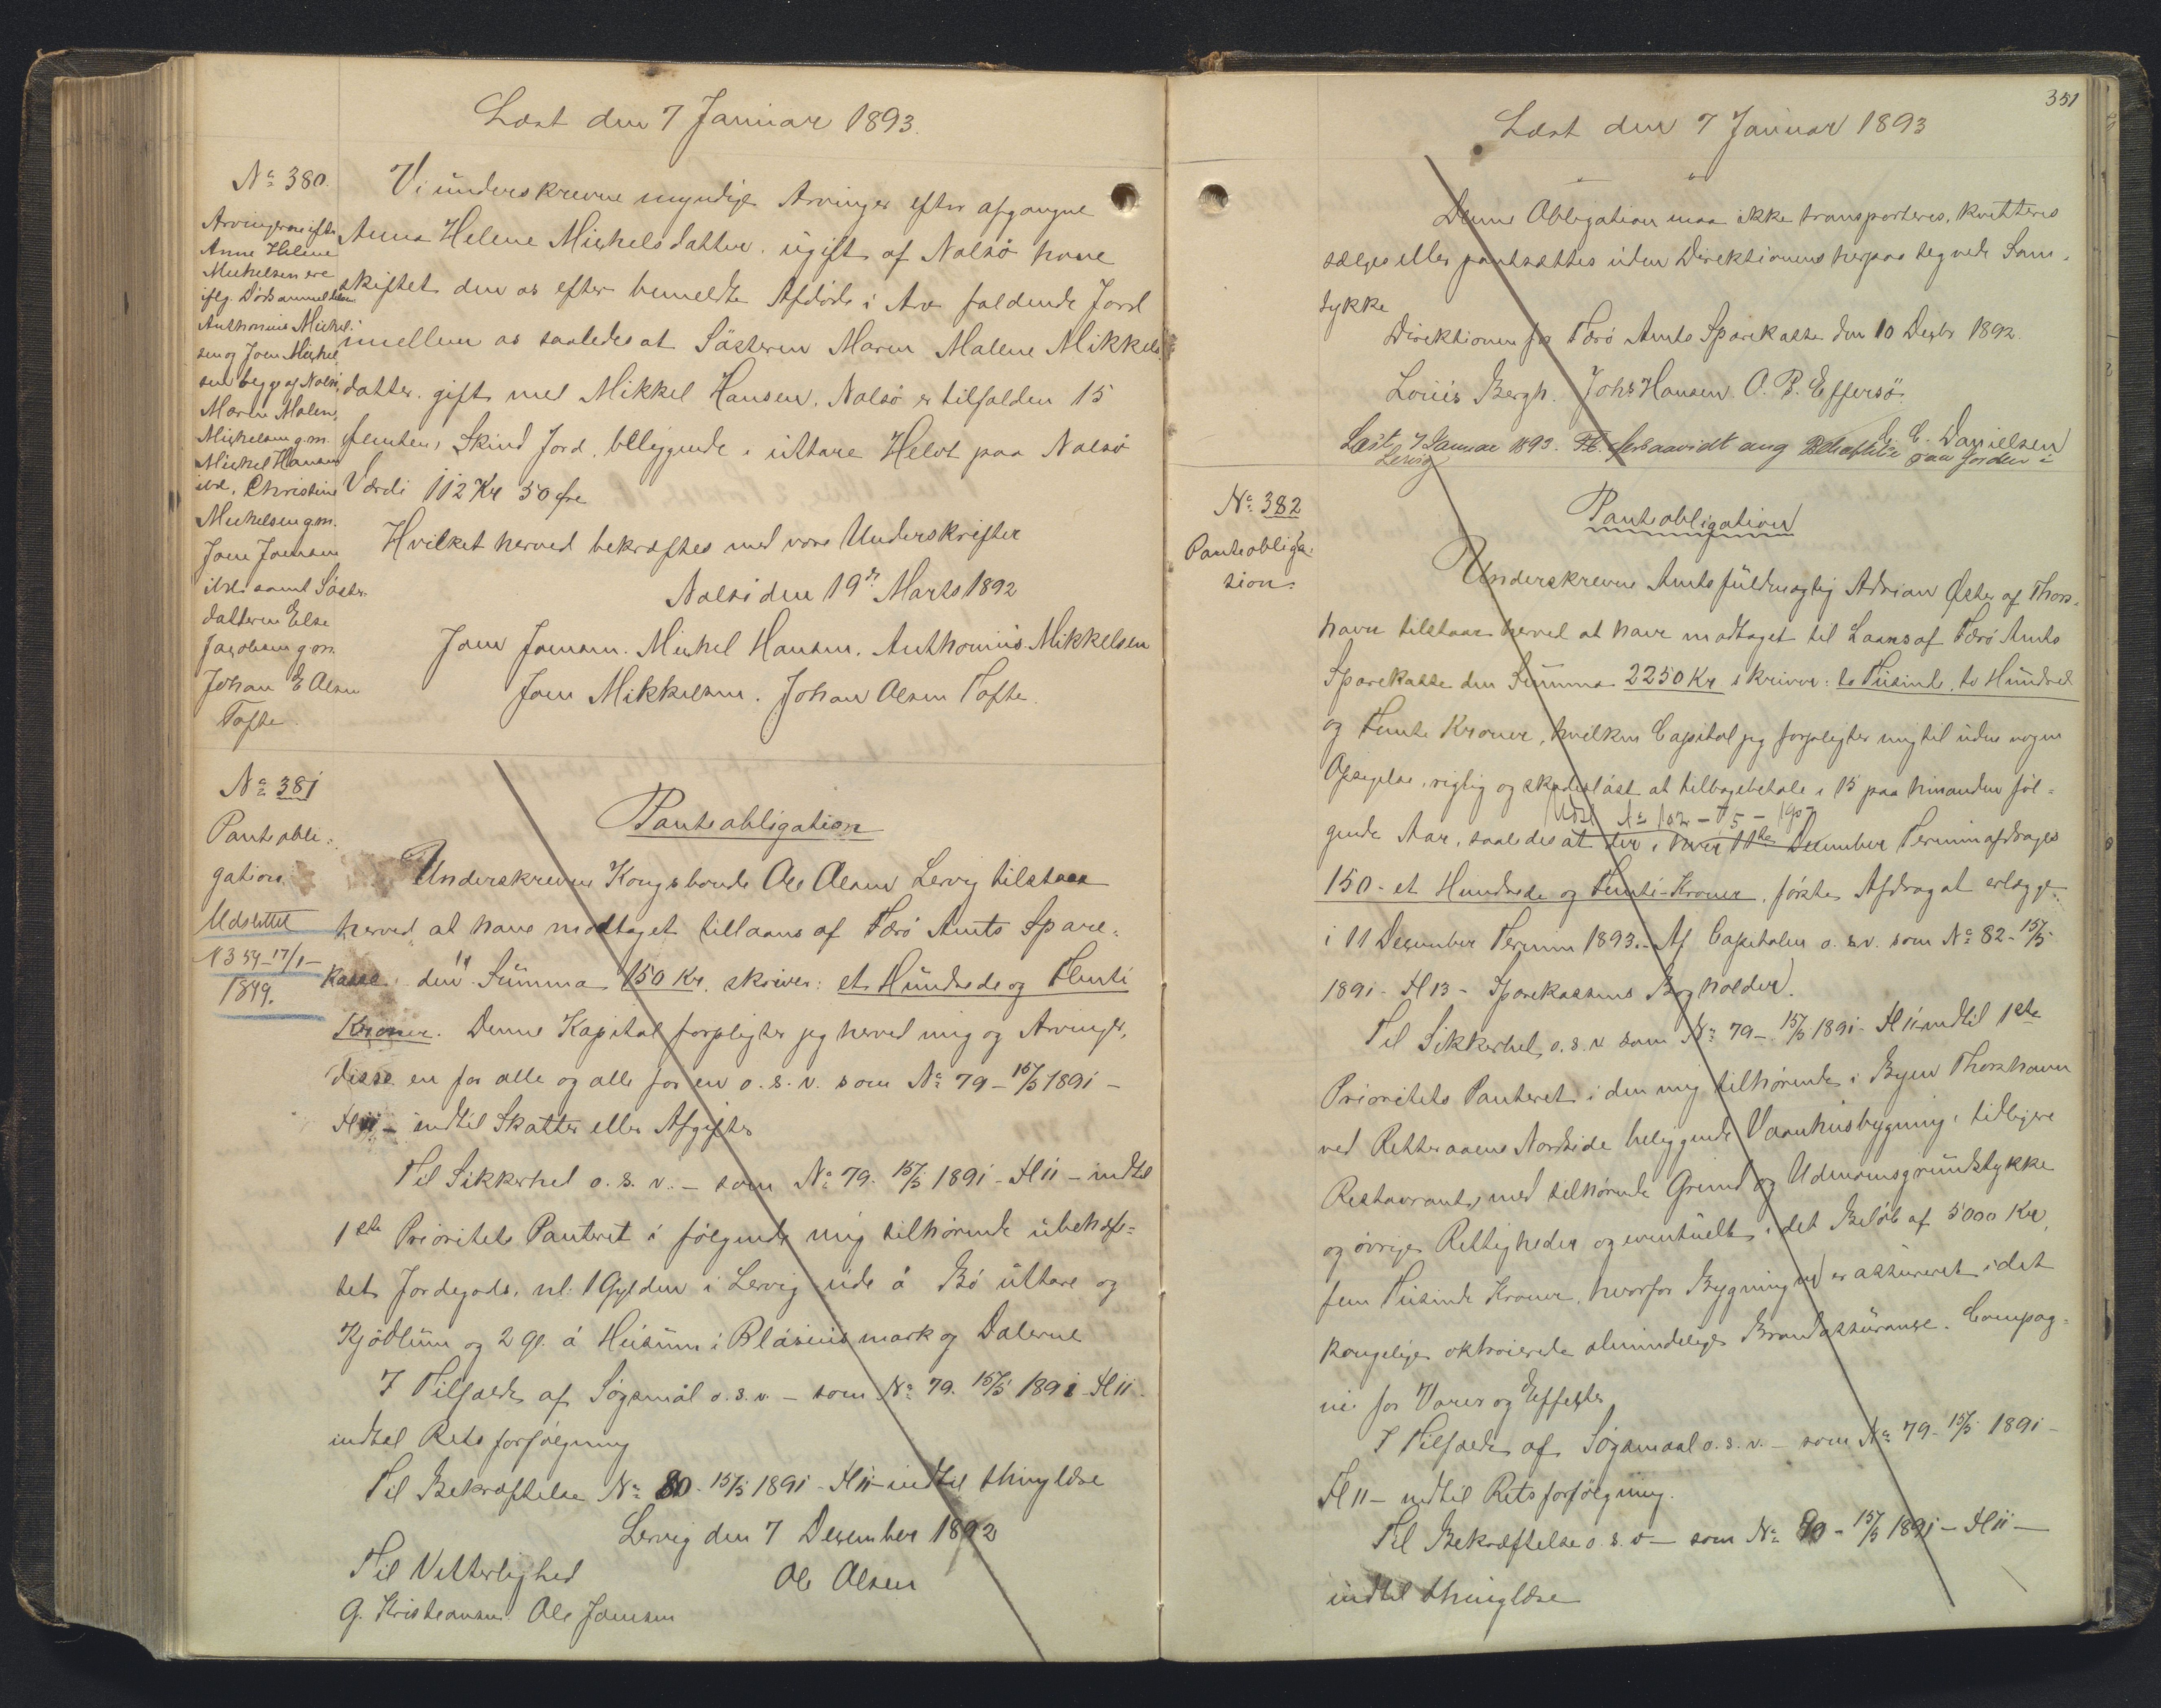 Læst den 7 Januar 1893.
No 380.
Arvingerne efter
Anne Helene
Michelsen ere
ifølg. Dødsanmeldelse
Anthonius Michel-
sen og Joen Michel
sen begge af Nolsø,
Maren Malene
Michelsen g.m.
Michel Hansen
ibd. Christine
Michelsen g.m.
Joen Joensen
ibd. samt Søster
datteren Else
Jacobsen g.m.
Johan E Olsen
Tofte.
Vi underskrevne myndige Arvinger efter afgangne
Anna Helene Michelsdatter ugift af Nolsö have
skiftet den os efter bemeldte Afdöde i Arv faldende Jord
imellem os saaledes at Sösteren Maren Malene Mikkels
datter gift med Mikkel Hansen, Nolsö er tilfalden 15
femten, Skind Jord, beliggende i uttare Helvt paa Nolsö
Værdi 112 Kr 50 Øre
Hvilket herved bekræftes med vore Underskrifter
Nolsö den 19de Marts 1892
Joen Joensen. Michel Hansen. Anthonius Mikkelsen
Joen Mikkelsen. Johan Olsen Tofte.
No 381
Panteobli-
gation.
Udslettet
N 354-17/1-
1899.
Panteobligation
Underskrevne Kongsbonde Ole Olsen Lervig tilstaar
herved at have modtaget tillaans af Færö Amts Spare-
kasse den Summa 150 Kr. skriver: et Hundrede og Femti
Kroner. Denne Kapital forpligter jeg herved mig og Arvinger,
disse en for alle og alle for en o.s.v. som No 79 - 15/5 1891 -
H 11 - indtil Skatter eller Afgifter
Til Sikkerhed o.s.v. - som No 79. 15/5 1891 - H 11 - indtil
1ste Prioritets Panteret i fölgende mig tilhörende ubehæf-
tet Jordegods, nl. 1 Gylden i Lervig ude á Bö úttare og
Kjödlum og 2 G. á Húsum i Blásuismark og Dalerne
I Tilfælde af Sögsmål o.s.v. - som No 79. 15/5 1891 - H 11.
indtil Rets forfölgning
Til Bekræftelse No 80. 15/5 1891 - H 11 - indtil thinglæse
Lervig den 7 Desember 1892
Til Vitterlighed Ole Olsen
G. Kristiansen Ole Joensen
351
Læst den 7 Januar 1893
Denne Obligation maa ikke transporteres, kvitteres
sælges eller pantsættes uden Direktionens herpaa tegnede Sam-
tykke
Direktionen for Færö Amts Sparekasse den 10 Desbr 1892.
Louis Bergh. Johs Hansen O. P. Effersö.
C. Danielsen
Læst 7 Januar 1893. forsaavidt ang Behæftelse paa Jorden i
Lervig
No 382
Panteobliga-
tion.
Panteobligation
Underskrevne Amtsfuldmægtig Adrian Øster af Thors-
havn tilstaar herved at have modtaget til Laans af Færö Amts
Sparekasse den Summa 2250 Kr skriver: to Tusinde, to Hundred
og Femti Kroner, hvilken Capital jeg forpligter mig til uden nogen
Opsigelse, rigtig og skadeslöst at tilbagebetale i 15 paa hinanden föl-
Udsl No 102 - 7/5 - 1907
gende Aar, saaledes at der i hver 11te Desember Termin afdrages
150 - et Hundrede og Femti - Kroner, förste Afdrag at erlægge
i 11 Desember Termin 1893. - Af Capitalen o.s.v. som No 82 - 15/5
1891 - H 13 - Sparekassens Bogholder.
Til Sikkerhed o.s.v. som No 79 - 15/5 1891 - H 11 indtil 1ste
Prioritets Panteret i den mig tilhörende i Byen Thorshavn
ved Retteraaens Nordside beliggende Vaanhusbygning, tidligere
Restaurant, med tilhörende Grund og Udmarksgrundstykke
og övrige Rettigheder og eventuelt i det Belöb af 5000 Kr,
fem Tusinde Kroner, hvorfor Bygningen er assureret i det
kongelige oktroierede almindelige Brandassurance - Compag-
ni for Varer og Effekter
I Tilfælde af Sögsmaal o.s.v. - som No 79 - 15/5 1891 -
H 11 - indtil Rets forfölgning.
Til Bekræftelse o.s.v - som No 80 - 15/5 1891 - H 11 -
indtil thinglæse